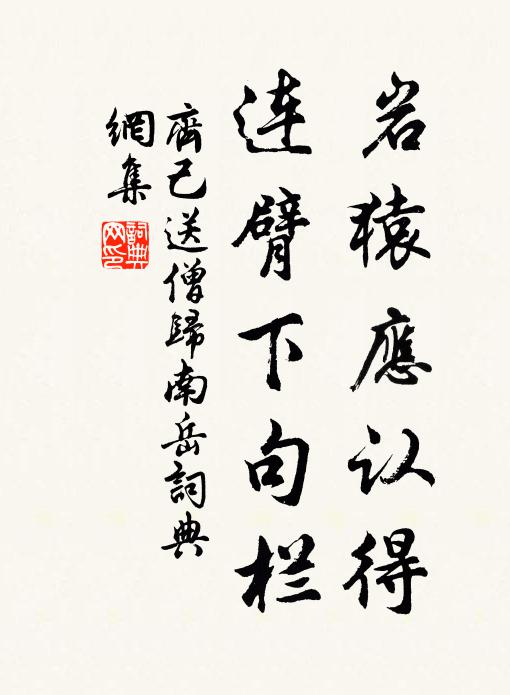 岩猿應认得
连臂下句栏
齊己送僧歸南岳詞典
網集
詞典
网印